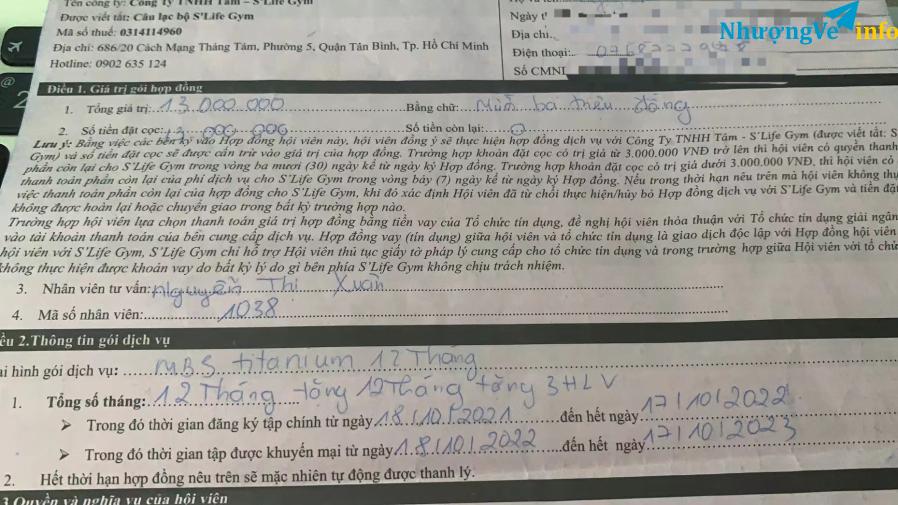 Tên công ty: Công Ty TNHH Tâm – S'Life Gym
Được viết tắt: Câu lạc bộ S'Life Gym
Mã số thuế: 0314114960
Địa chỉ: 686/20 Cách Mạng Tháng Tám, Phường 5, Quận Tân Bình, Tp. Hồ Chí Minh
Hotline: 0902 635 124
Ngày
Địa chỉ:
Điện thoại:
Số CMND
NhượngVé info
Điều 1. Giá trị gói hợp đồng
1. Tổng giá trị: 13.000.000 Bằng chữ: Mười ba triệu đồng
2. Số tiền đặt cọc: 13.000.000 Số tiền còn lại: 0
Lưu ý: Bằng việc các bên ký vào Hợp đồng hội viên này, hội viên đồng ý sẽ thực hiện hợp đồng dịch vụ với Công Ty TNHH Tâm - S'Life Gym (được viết tắt: S
Gym) và số tiền đặt cọc sẽ được cấn trừ vào giá trị của hợp đồng. Trường hợp khoản đặt cọc có trị giá từ 3.000.000 VNĐ trở lên thì hội viên có quyền thanh
phần còn lại cho S'Life Gym trong vòng ba mươi (30) ngày kể từ ngày ký Hợp đồng. Trường hợp khoản đặt cọc có trị giá dưới 3.000.000 VNĐ, thì hội viên có
thanh toán phần còn lại của phí dịch vụ cho S'Life Gym trong vòng bảy (7) ngày kể từ ngày ký Hợp đồng. Nếu trong thời hạn nêu trên mà hội viên không thự
việc thanh toán phần còn lại của hợp đồng cho S'Life Gym, khi đó xác định Hội viên đã từ chối thực hiện/hủy bỏ Hợp đồng dịch vụ với S'Life Gym và tiền đặt
không được hoàn lại hoặc chuyển giao trong bất kỳ trường hợp nào.
Trường hợp hội viên lựa chọn thanh toán giá trị hợp đồng bằng tiền vay của Tổ chức tín dụng, đề nghị hội viên thỏa thuận với Tổ chức tín dụng giải ngân
vào tài khoản thanh toán của bên cung cấp dịch vụ. Hợp đồng vay (tín dụng) giữa hội viên và tổ chức tín dụng là giao dịch độc lập với Hợp đồng hội viên
hội viên với S'Life Gym, S'Life Gym chỉ hỗ trợ Hội viên thủ tục giấy tờ pháp lý cung cấp cho tổ chức tín dụng và trong trường hợp giữa Hội viên với tổ chứ
không thực hiện được khoản vay do bất kỳ lý do gì bên phía S'Life Gym không chịu trách nhiệm.
3. Nhân viên tư vấn: Nguyễn Thị Xuân
4. Mã số nhân viên: 1038
ều 2.Thông tin gói dịch vụ
ại hình gói dịch vụ: MBS titanium 12 Tháng
1. Tổng số tháng: 12 Tháng tặng 12 Tháng tặng 3 HLV
➢ Trong đó thời gian đăng ký tập chính từ ngày 18/10/2021 đến hết ngày 17/10/2022
➢ Trong đó thời gian tập được khuyến mại từ ngày 18/10/2022 đến hết ngày 17/10/2023
2. Hết thời hạn hợp đồng nêu trên sẽ mặc nhiên tự động được thanh lý.
3.Quyền và nghĩa vụ của hội viên